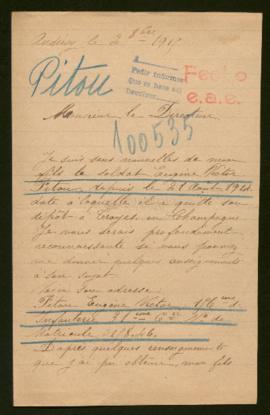 le 2 8bre 191
Pitou
Pedir informes
que se haga así
Fecho
e.a.e.
Monsieur le Directeur
100535
Je suis sans nouvelles de mon
fils le soldat Eugène Victor
Pitou depuis le août 1914
date à laquelle il a quitté son
dépôt à Troyes en Champagne
Je vous serais profondément
reconnaissante si vous pouvez
me donner quelques renseignements
à son sujet
Voici son adresse
Pitou Eugène Victor
Infanterie Cie No de
Matricule
D'après quelques renseignements
que j'ai pu obtenir, mon fils